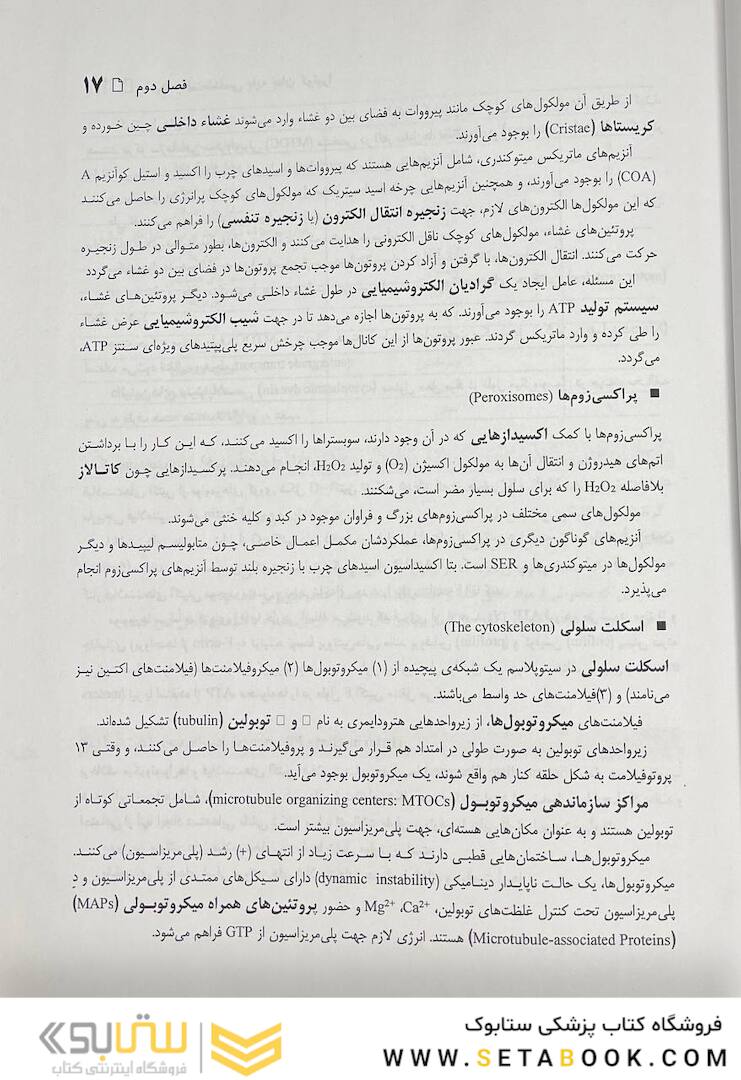 فصل دوم 🗋 ۱۷
از طریق آن مولکول‌های کوچک مانند پیرووات به فضای بین دو غشاء وارد می‌شوند غشاء داخلی چین خورده و
کریستاها (Cristae) را بوجود می‌آورند.
آنزیم‌های ماتریکس میتوکندری، شامل آنزیم‌هایی هستند که پیرووات‌ها و اسیدهای چرب را اکسید و استیل کوآنزیم A
(COA) را بوجود می‌آورند، و همچنین آنزیم‌هایی چرخه اسید سیتریک که مولکول‌های کوچک پرانرژی را حاصل می‌کنند
که این مولکول‌ها الکترون‌های لازم، جهت زنجیره انتقال الکترون (یا زنجیره تنفسی) را فراهم می‌کنند.
پروتئین‌های غشاء، مولکول‌های کوچک ناقل الکترونی را هدایت می‌کنند و الکترون‌ها، بطور متوالی در طول زنجیره
حرکت می‌کنند. انتقال الکترون‌ها، با گرفتن و آزاد کردن پروتون‌ها موجب تجمع پروتون‌ها در فضای بین دو غشاء می‌گردد
این مسئله، عامل ایجاد یک گرادیان الکتروشیمیایی در طول غشاء داخلی می‌شود. دیگر پروتئین‌های غشاء،
سیستم تولید ATP را بوجود می‌آورند. که به پروتون‌ها اجازه می‌دهد تا در جهت شیب الکتروشیمیایی عرض غشاء
را طی کرده و وارد ماتریکس گردند. عبور پروتون‌ها از این کانال‌ها موجب چرخش سریع پلی‌پپتیدهای ویژه‌ای سنتز ATP،
می‌گردد.
■ پراکسی‌زوم‌ها (Peroxisomes)
پراکسی‌زوم‌ها با کمک اکسیدازهایی که در آن وجود دارند، سوبستراها را اکسید می‌کنند، که این کار را با برداشتن
اتم‌های هیدروژن و انتقال آن‌ها به مولکول اکسیژن (O₂) و تولید H₂O₂، انجام می‌دهند. پرکسیدازهایی چون کاتالاز
بلافاصله H₂O₂ را که برای سلول بسیار مضر است، می‌شکنند.
مولکول‌های سمی مختلف در پراکسی‌زوم‌های بزرگ و فراوان موجود در کبد و کلیه خنثی می‌شوند.
آنزیم‌های گوناگون دیگری در پراکسی‌زوم‌ها، عملکردشان مکمل اعمال خاصی، چون متابولیسم لیپیدها و دیگر
مولکول‌ها در میتوکندری‌ها و SER است. بتا اکسیداسیون اسیدهای چرب با زنجیره بلند توسط آنزیم‌های پراکسی‌زوم انجام
می‌پذیرد.
■ اسکلت سلولی (The cytoskeleton)
اسکلت سلولی در سیتوپلاسم یک شبکه‌ی پیچیده از (۱) میکروتوبول‌ها (۲) میکروفیلامنت‌ها (فیلامنت‌های اکتین نیز
می‌نامند) و (۳)فیلامنت‌های حد واسط می‌باشند.
فیلامنت‌های میکروتوبول‌ها، از زیرواحدهایی هترودایمری به نام □ و □ توبولین (tubulin) تشکیل شده‌اند.
زیرواحدهای توبولین به صورت طولی در امتداد هم قرار می‌گیرند و پروفیلامنت‌ها را حاصل می‌کنند، و وقتی ۱۳
پروتوفیلامت به شکل حلقه کنار هم واقع شوند، یک میکروتوبول بوجود می‌آید.
مراکز سازماندهی میکروتوبول (microtubule organizing centers: MTOCs)، شامل تجمعاتی کوتاه از
توبولین هستند و به عنوان مکان‌هایی هسته‌ای، جهت پلی‌مریزاسیون بیشتر است.
میکروتوبول‌ها، ساختمان‌هایی قطبی دارند که با سرعت زیاد از انتهای (+) رشد (پلی‌مریزاسیون) می‌کنند.
میکروتوبول‌ها، یک حالت ناپایدار دینامیکی (dynamic instability) دارای سیکل‌های ممتدی از پلی‌مریزاسیون و دِ
پلی‌مریزاسیون تحت کنترل غلظت‌های توبولین، Ca²⁺، Mg²⁺ و حضور پروتئین‌های همراه میکروتوبولی (MAPs)
(Microtubule-associated Proteins) هستند. انرژی لازم جهت پلی‌مریزاسیون از GTP فراهم می‌شود.
فروشگاه کتاب پزشکی ستابوک
WWW.SETABOOK.COM
ستابوک
فروشگاه اینترنتی کتاب